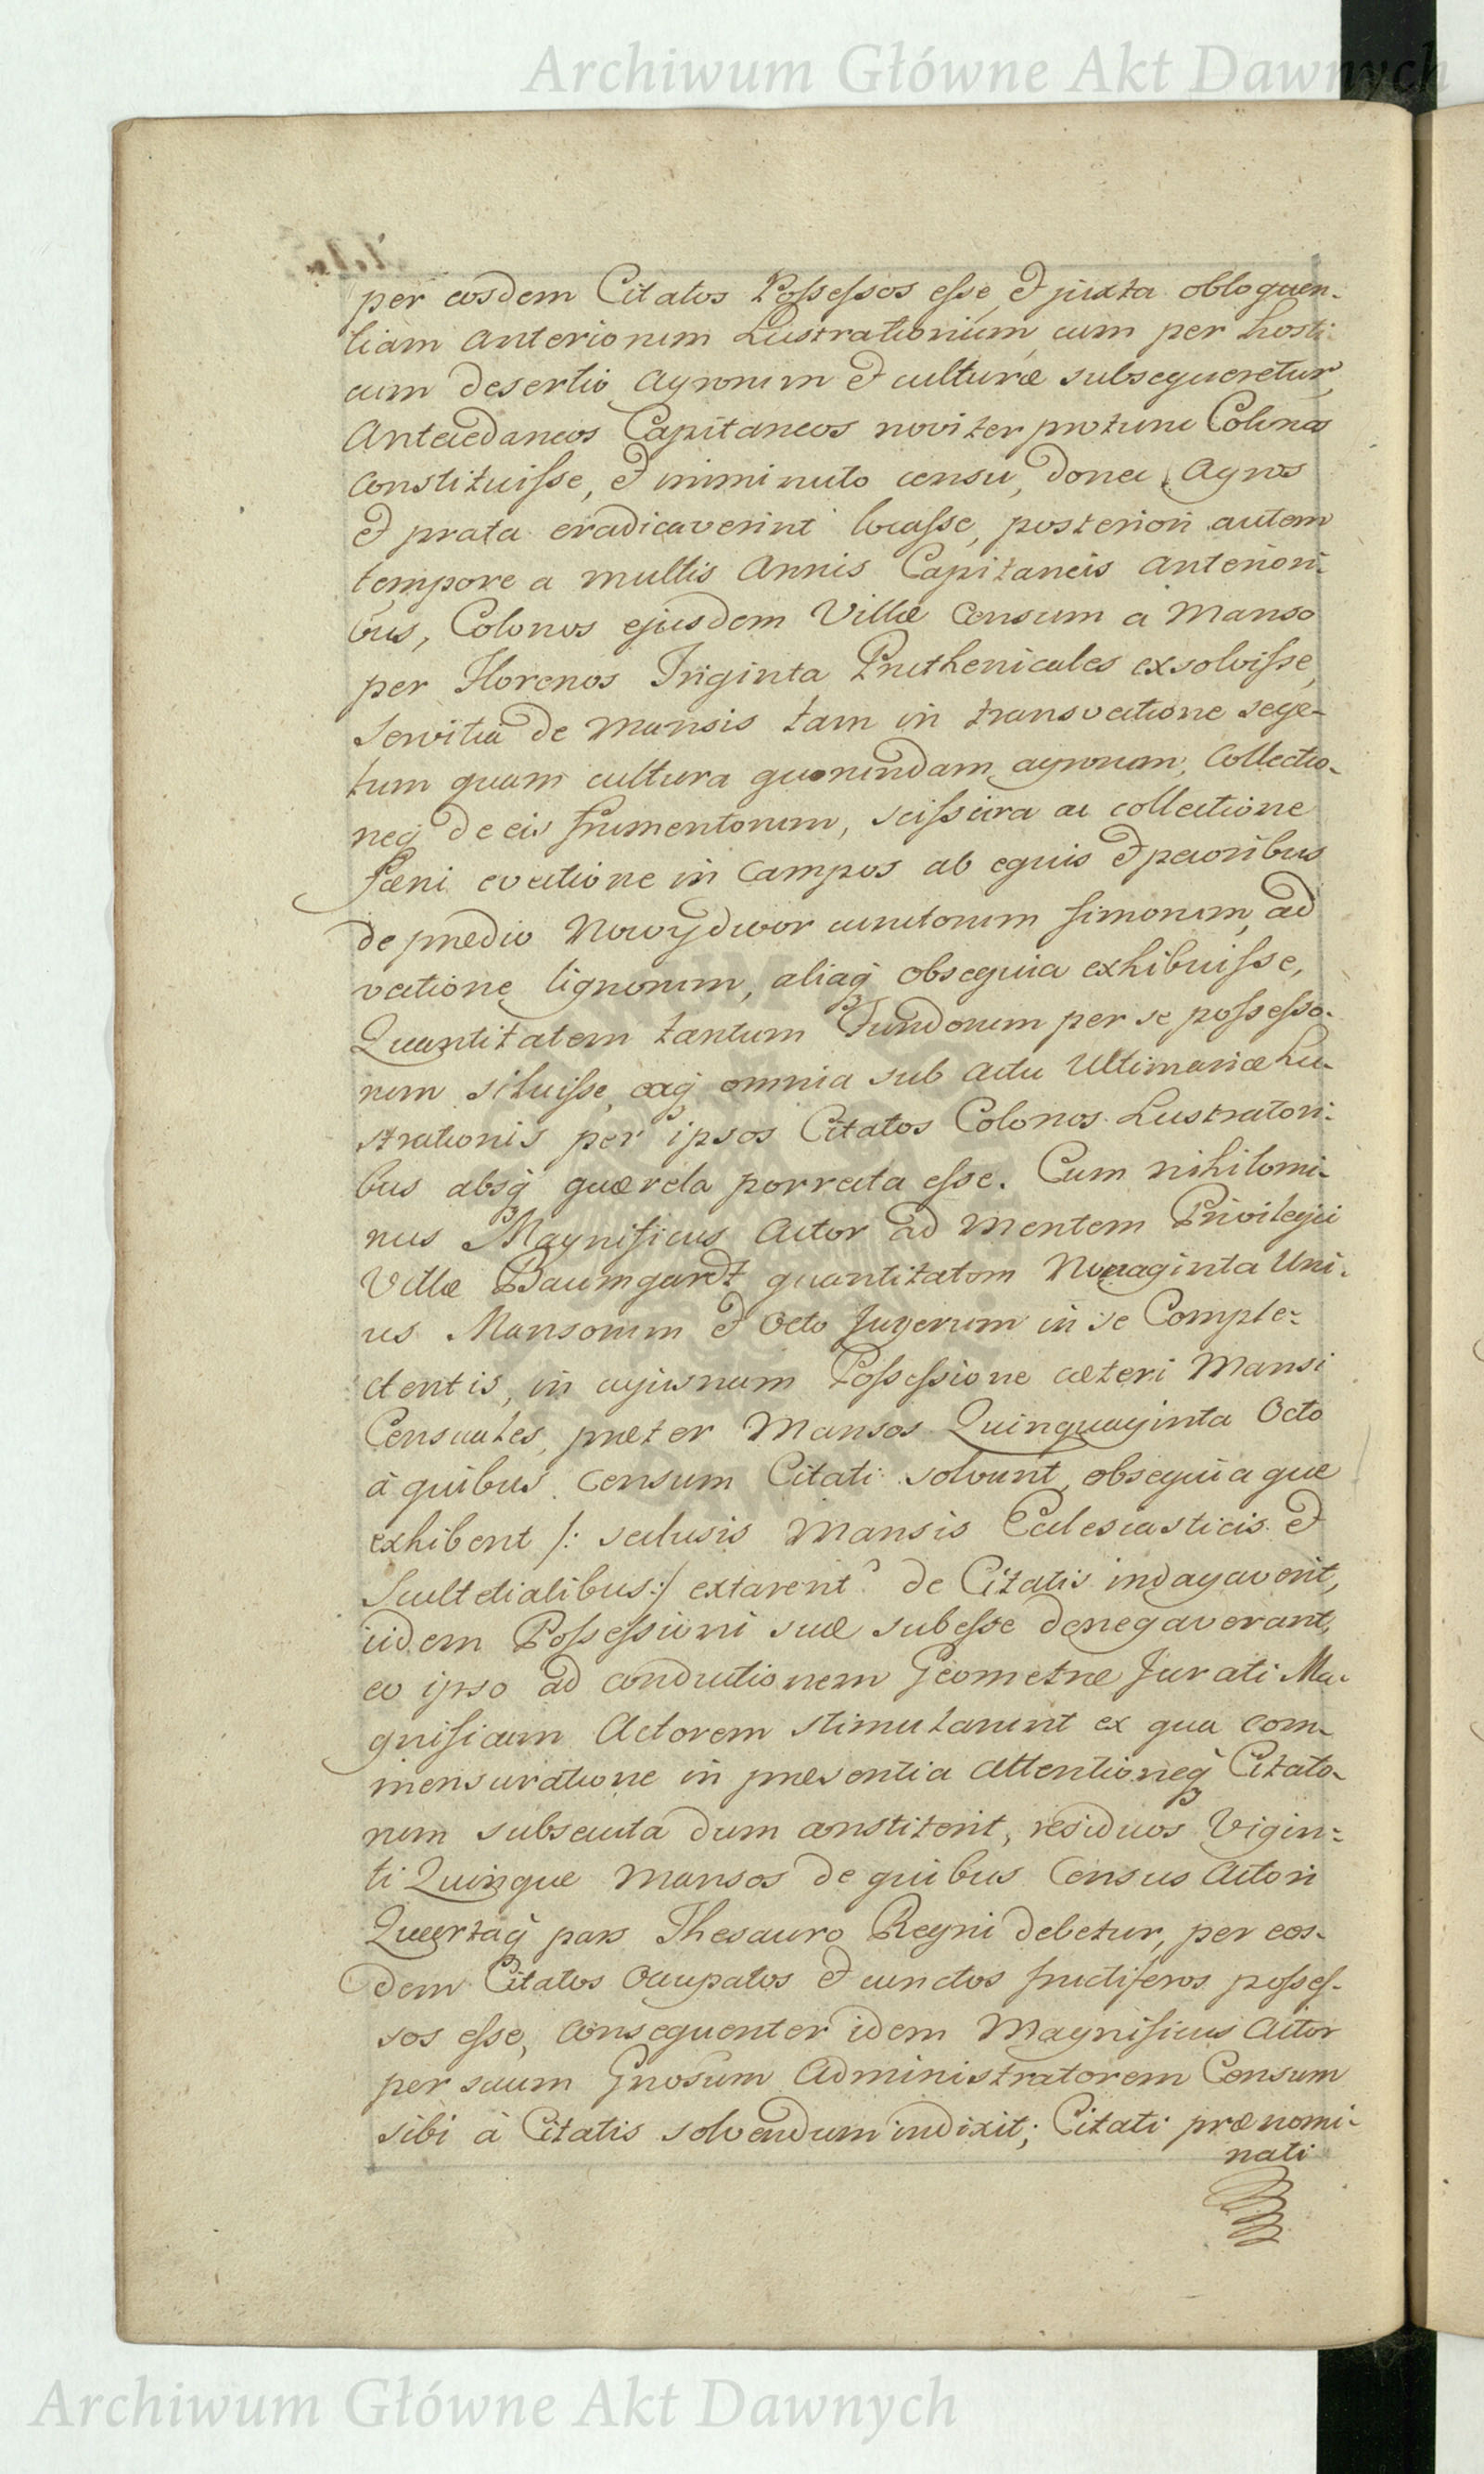 Archiwum Główne Akt Dawnych
per eosdem Citatos Possessos esse, et juxta obloquen-
tiam anteriorum Lustrationum, cum per hosti-
cum desertio agrorum et culturæ subsequeretur,
Antecedaneos Capitaneos noviter protunc Colonos
constituisse, et imminuto censu, donec Agros
et prata eradicaverint locasse, posteriori autem
tempore a multis Annis Capitaneis anteriori-
bus, Colonos ejusdem Villæ Censum a Manso
per Florenos Triginta Pruthenicales exsolvisse,
Servitia de Mansis tam in transvectione sege-
tum quam cultura quorundam agrorum, Collectio-
neq de eis frumentorum, scissura ac collectione
Fæni evectione in Campos ab equis et pecoribus
de prædio Nowydwor cunctorum fimorum, ad
vectione lignorum, aliaq obsequia exhibuisse,
Quantitatem tantum Fundorum per se possesso-
rum siluisse, eaq omnia sub actu Ultimariæ Lu-
strationis per ipsos Citatos Colonos Lustratori-
bus absq quærela porrecta esse. Cum nihilomi-
nus Magnificus Actor ad mentem Privilegii
Villæ Baumgardt quantitatem Nonaginta Uni-
us Mansorum et Octo Jugerum in se Comple-
ctentis, in cujusnam Possessione cæteri Mansi
Censuales, præter Mansos Quinquaginta Octo
à quibus Censum Citati solvunt, obsequia quæ
exhibent /: seclusis Mansis Ecclesiasticis et
Scultetialibus :/ extarent? de Citatis indagaverit,
iidem Possessioni suæ subesse denegaverant,
eo ipso ad conductionem Geometræ Jurati Ma-
gnificum Actorem stimularunt ex qua com-
mensuratione in præsentia attentioneq Citato-
rum subsecuta dum constiterit, residuos Vigin-
ti Quinque Mansos de quibus Census Actori
Quartaq pars Thesauro Regni debetur, per eos-
dem Citatos Occupatos et cunctos fructiferos posses-
sos esse, consequenter idem Magnificus Actor
per suum Gnosum Administratorem Censum
sibi à Citatis solvendum indixit; Citati prænomi-
nati
Archiwum Główne Akt Dawnych